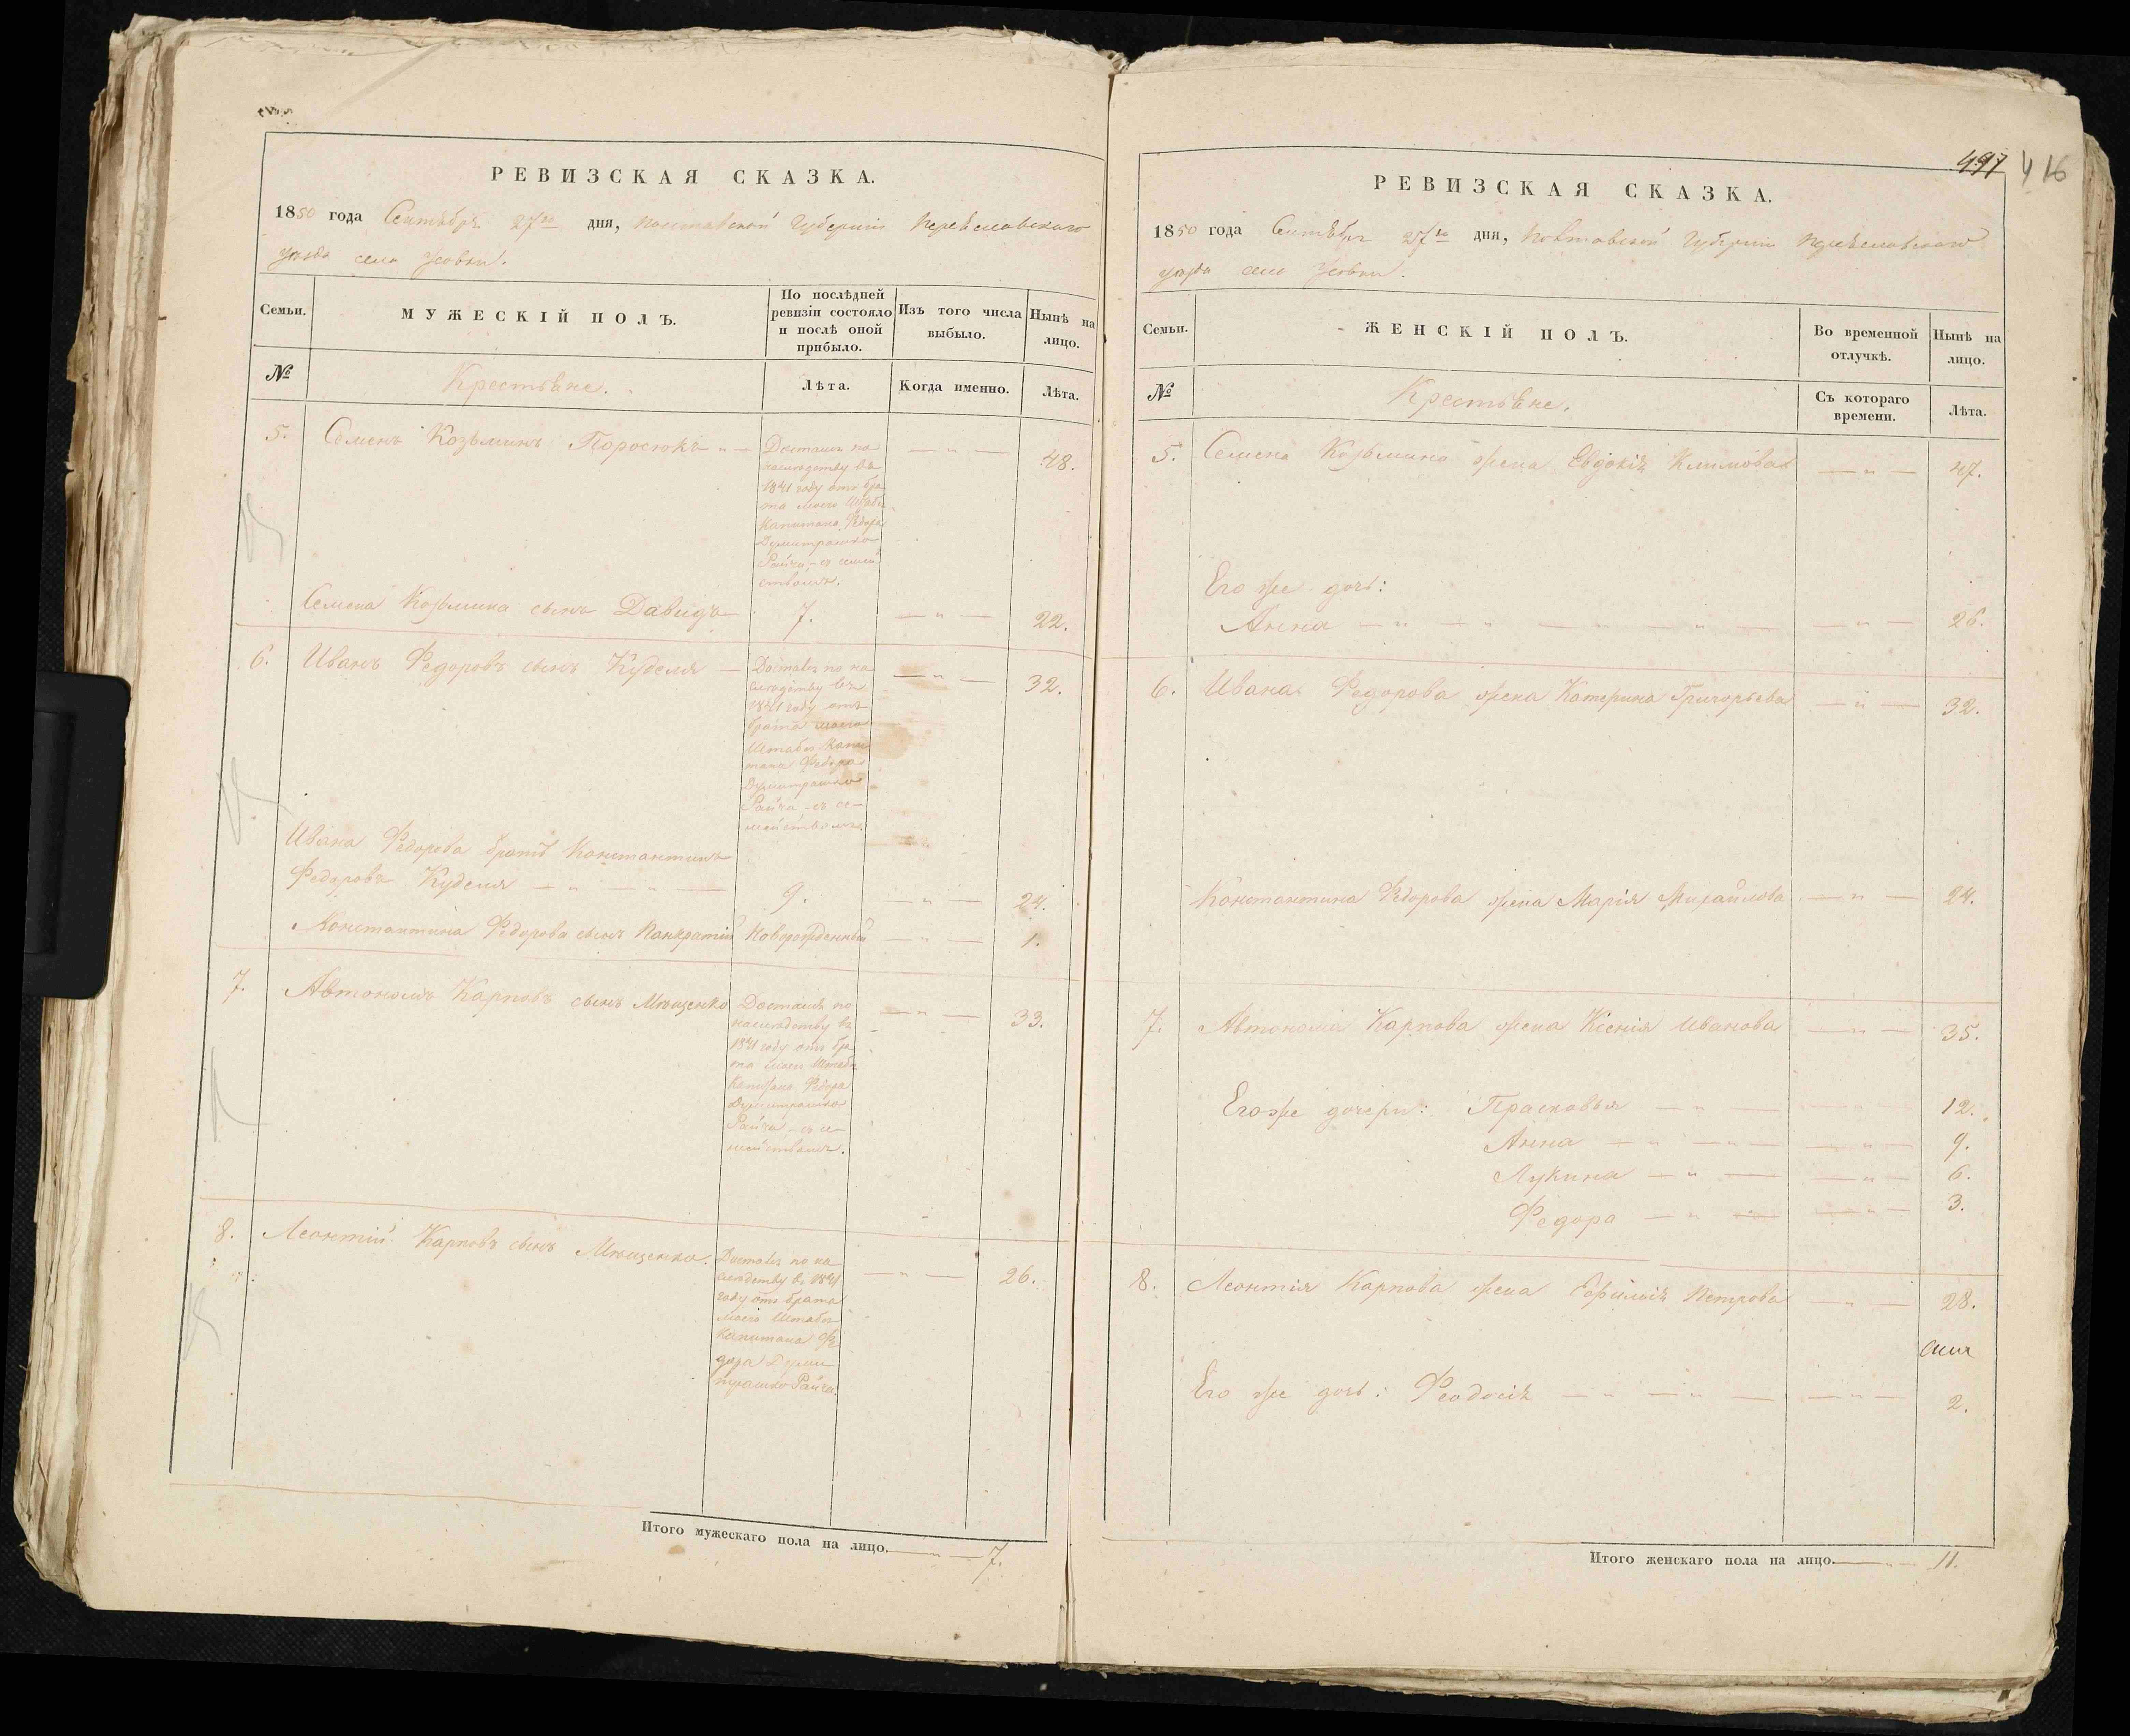 РЕВИЗСКАЯ СКАЗКА.
1850 года Сентября 27го дня, Полтавской Губерніи Переяславскаго
уезда села Усовки.
Семьи.
МУЖЕСКІЙ ПОЛЪ.
По послѣдней
ревизіи состояло
и послѣ оной
прибыло.
Изъ того числа
выбыло.
Нынѣ на
лицо.
№
Крестьяне.
Лѣта.
Когда именно.
Лѣта.
5. Семенъ Козьминъ Поросюкъ — " — 48.
Досталъ по
наслѣдству въ
1841 году отъ бра
та моего Штабъ
Капитана Федора
Думитрашко
Райча – съ семей
ствомъ.
Семена Козьмина сынъ Давидъ 7. — " — 22.
6. Иванъ Федоровъ сынъ Куделя — " — 32.
Досталъ по на
слѣдству въ
1841 году отъ
брата моего
Штабъ Капи
тана Федора
Думитрашко
Райча – съ се–
мействомъ.
Ивана Федорова братъ Константинъ
Федоровъ Куделя — " — 9. — " — 24.
Константина Федорова сынъ Панкратій Новорожденный — " — 1.
7. Автономъ Карповъ сынъ Мищенко — " — 33.
Досталъ по
наслѣдству въ
1841 году отъ бра
та моего Штабъ
Капитана Федора
Думитрашко
Райча – съ се–
мействомъ.
8. Леонтій Карповъ сынъ Мищенко. — " — 26.
Досталъ по на
слѣдству въ 1841
году отъ брата
моего Штабъ
Капитана Фе
дора Думи
трашко Райча.
Итого мужескаго пола на лицо. — " — 7.
497 416
РЕВИЗСКАЯ СКАЗКА.
1850 года Сентября 27го дня, Полтавской Губерніи Переяславскаго
уезда села Усовки.
Семьи.
ЖЕНСКІЙ ПОЛЪ.
Во временной
отлучкѣ.
Нынѣ на
лицо.
№
Крестьяне.
Съ котораго
времени.
Лѣта.
5. Семена Козьмина жена Евдокія Климова — " — 47.
Его же дочь:
Анна — " — " — " — 26.
6. Ивана Федорова жена Катерина Григорьева — " — 32.
Константина Федорова жена Марія Михайлова — " — 24.
7. Автонома Карпова жена Ксенія Иванова — " — 35.
Его же дочери: Прасковья — " — 12.
Анна — " — " — 9.
Лукина — " — " — 6.
Федора — " — " — 3.
8. Леонтія Карпова жена Евфимія Петрова — " — 28.
Его же дочь: Феодосія — " — " — 2.
Итого женскаго пола на лицо. — " — 11.